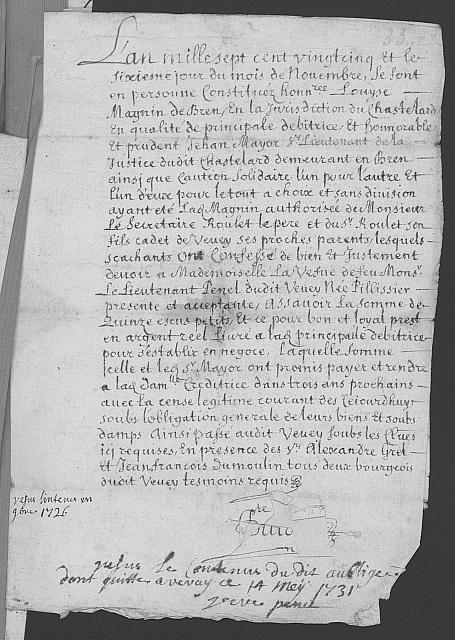 L'an mille sept cent vingt cinq et le
sixiesme jour du mois de Novembre, se sont
en personne Constituéz honn.rée Louyse
Magnin de Bren, En la Jurisdiction du Chastelard
En qualité de principale debitrice, Et honnorable
Et prudent Jehan Mayor S.r Lieutenant de la
Justice dudit Chastelard demeurant en Bren
ainsi que Caution Solidaire l'un pour l'autre Et
l'un d'eux pour le tout a choix et sans division
ayant eté Lad. Magnin authorisée de Monsieur
Le Secretaire Roulet le pere et du S.r Roulet son
fils cadet de Vevey ses proches parents, lesquels
scachants Ont Confessé de bien Et Justement
devoir a Mademoiselle La Vefue de feu Mons.r
Le Lieutenant Penel dudit Vevey Née Pillissier
presente et acceptante, Assauoir La Somme de
Quinze escus petits, Et ce pour bon et loyal prest
en argent réel Livré a lad. principale debitrice
pour s'establir en negoce, Laquelle Somme
icelle et led. S.r Mayor ont promis payer et rendre
a lad. Dam.lle Creditrice dans trois ans prochains
auec la cense legitime courant des Cejourdhuy
soubs l'obligation generale de leurs biens et soubs
damps Ainsi passé audit Vevey soubs les Clues
icy requises, En presence des S.rs Alexandre Gret
Et Jean francois Dumoulin tous deux bourgeois
dudit Vevey tesmoins requis
resus lintenes un
9bre 1726
resus Le Contenus du dit aubligé
dont quitte a vevay ce 14 mey 1731
penel